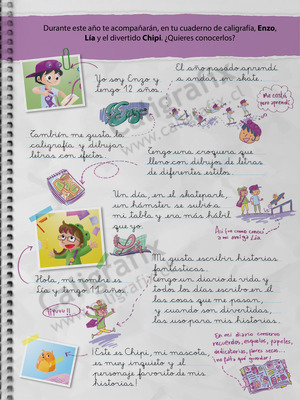 Durante este año te acompañarán, en tu cuaderno de caligrafía, Enzo,
Lía y el divertido Chipi. ¿Quieres conocerlos?
Yo soy Enzo y
tengo 12 años.
El año pasado aprendí
a andar en skate.
Me costó
pero aprendí.
Enzo
También me gusta la
caligrafía y dibujar
letras con efectos.
Tengo una croquera que
lleno con dibujos de letras
de diferentes estilos.
Un día, en el skatepark,
un hámster se subió a
mi tabla y era más hábil
que yo.
Así fue como conocí
a mi amiga Lía.
Hola, mi nombre es
Lía y tengo 11 años.
Me gusta escribir historias
fantásticas.
Tengo un diario de vida y
todos los días escribo en él
las cosas que me pasan,
y cuando son divertidas,
las uso para mis historias.
En mi diario conservo
recuerdos, esquelas, papeles,
dedicatorias, flores secas...
¡Este es Chipi, mi mascota,
es muy inquieto y el
personaje favorito de mis
historias!
caligrafix